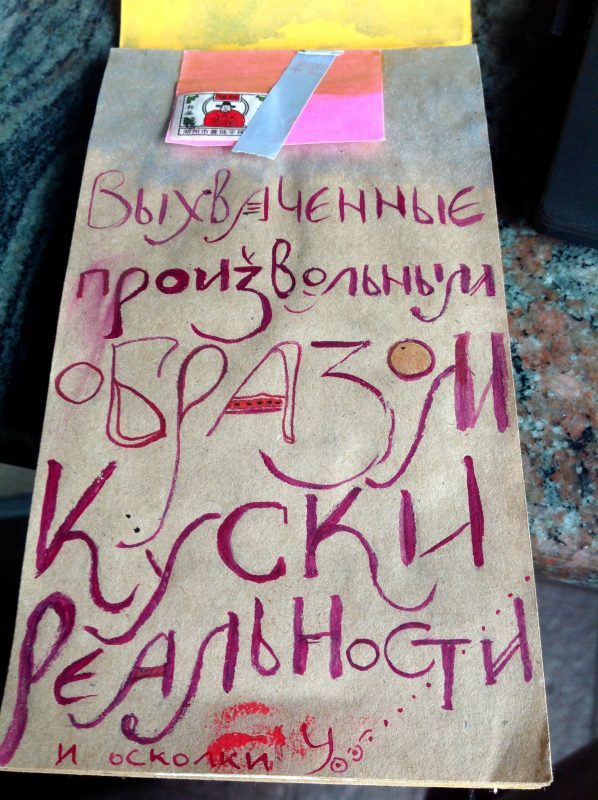 湖州市善琏
Выхваченные
произвольным
ОБРАЗОМ
КУСКИ
РЕАЛЬНОСТИ
и осколки